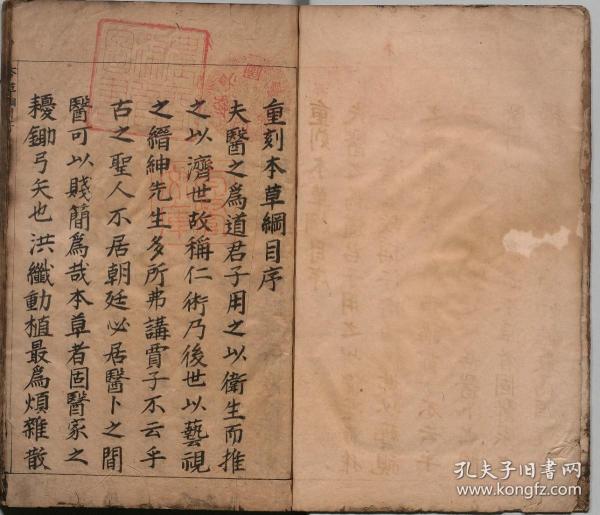 重刻本草綱目序
夫醫之為道君子用之以衛生而推
之以濟世故稱仁術乃後世以藝視
之縉紳先生多所弗講賈子不云乎
古之聖人不居朝廷必居醫卜之間
醫可以賤簡為哉本草者固醫家之
耰鋤弓矢也洪纖動植最為煩雜散
孔夫子旧书网
www.kongfz.com